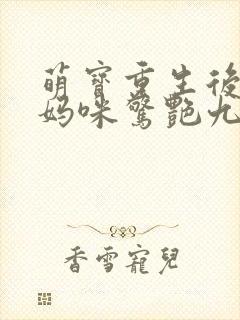 萌寶重生後
媽咪驚艷九
香雪寵兒